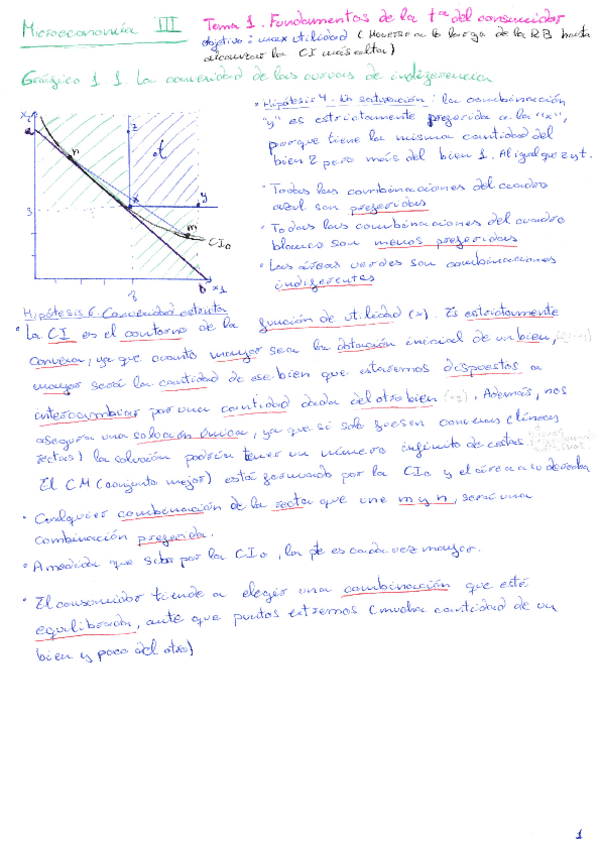 Microeconomía III
Tema 1. Fundamentos de la tª del consumidor
objetivo: max utilidad (Moverse a lo largo de la RB hasta
alcanzar la CI más alta)
Gráfico 1.1 La convexidad de las curvas de indiferencia
• Hipótesis 4. No saturación: la combinación
"y" es estrictamente preferida a la "x",
porque tiene la misma cantidad del
bien 2 pero más del bien 1. Al igual que z y t.
• Todas las combinaciones del cuadro
azul son preferidas
• Todas las combinaciones del cuadro
blanco son menos preferidas
• Las áreas verdes son combinaciones
indiferentes
x2
a
n
z
t
x
y
m
CI0
b
x1
Hipótesis 6. Convexidad estricta
• La CI es el contorno de la función de utilidad (x). Es estrictamente
convexa, ya que cuanto mayor sea la dotación inicial de un bien,
mayor será la cantidad de ese bien que estaremos dispuestos a
intercambiar por una cantidad dada del otro bien (x2). Además, nos
asegura una solución única, ya que si solo fuesen convexas (líneas
rectas) la solución podría tener un número infinito de cestas
El CM (conjunto mejor) está formado por la CI0 y el área a su derecha
• Cualquier combinación de la recta que une m y n, será una
combinación preferida.
• A medida que sube por la CI0, la pte es cada vez mayor.
• El consumidor tiende a elegir una combinación que esté
equilibrada, ante que puntos extremos (mucha cantidad de un
bien y poco del otro)
1